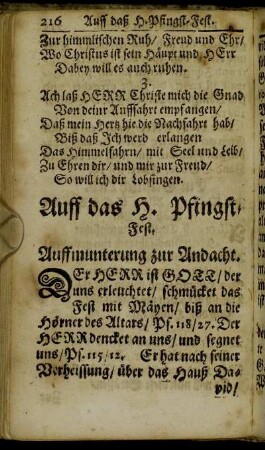 216 Auff daß H. Pfingst-Fest.
Zur himmlischen Ruh / Freud und Ehr /
Wo Christus ist sein Häupt und HErr
Dabey will es auch ruhen.
3.
Ach laß HERR Christe mich die Gnad
Von deinr Auffsahrt empfangen /
Daß mein Hertz hie die Nachfahrt hab /
Biß daß Ich werd erlangen
Das Himmelfahrn / mit Seel und Leib /
Zu Ehren dir / und mir zur Freud /
So will ich dir Lobsingen.
Auff das H. Pfingst-
Fest.
Auffmunterung zur Andacht.
DEr HERR ist GOTT / der
uns erleuchtet / schmücket das
Fest mit Mäyen / biß an die
Hörner des Altars / Ps. 118 / 27. Der
HERR dencket an uns / und segnet
uns / Ps. 115 / 12. Er hat nach seiner
Verheissung / über das Hauß Da-
vid /